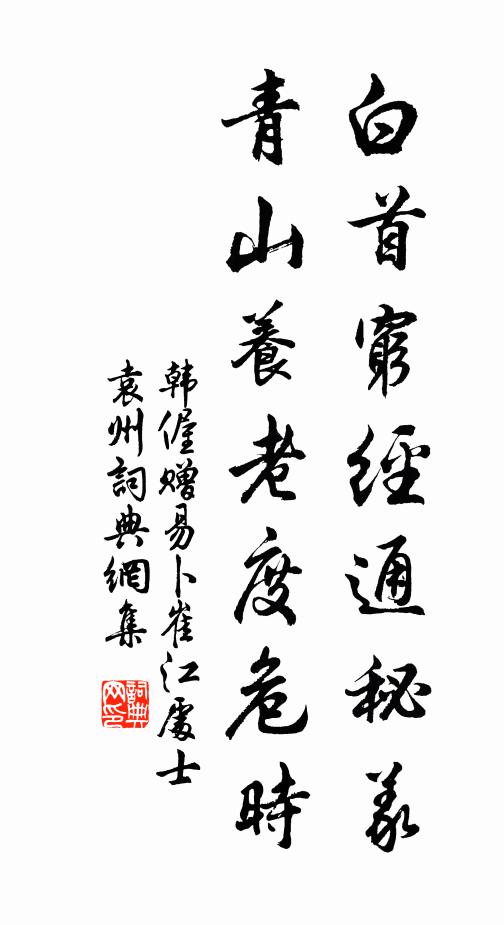 白首窮經通秘義
青山養老度危時
韩偓赠易卜崔江處士
袁州詞典網集
詞典網印